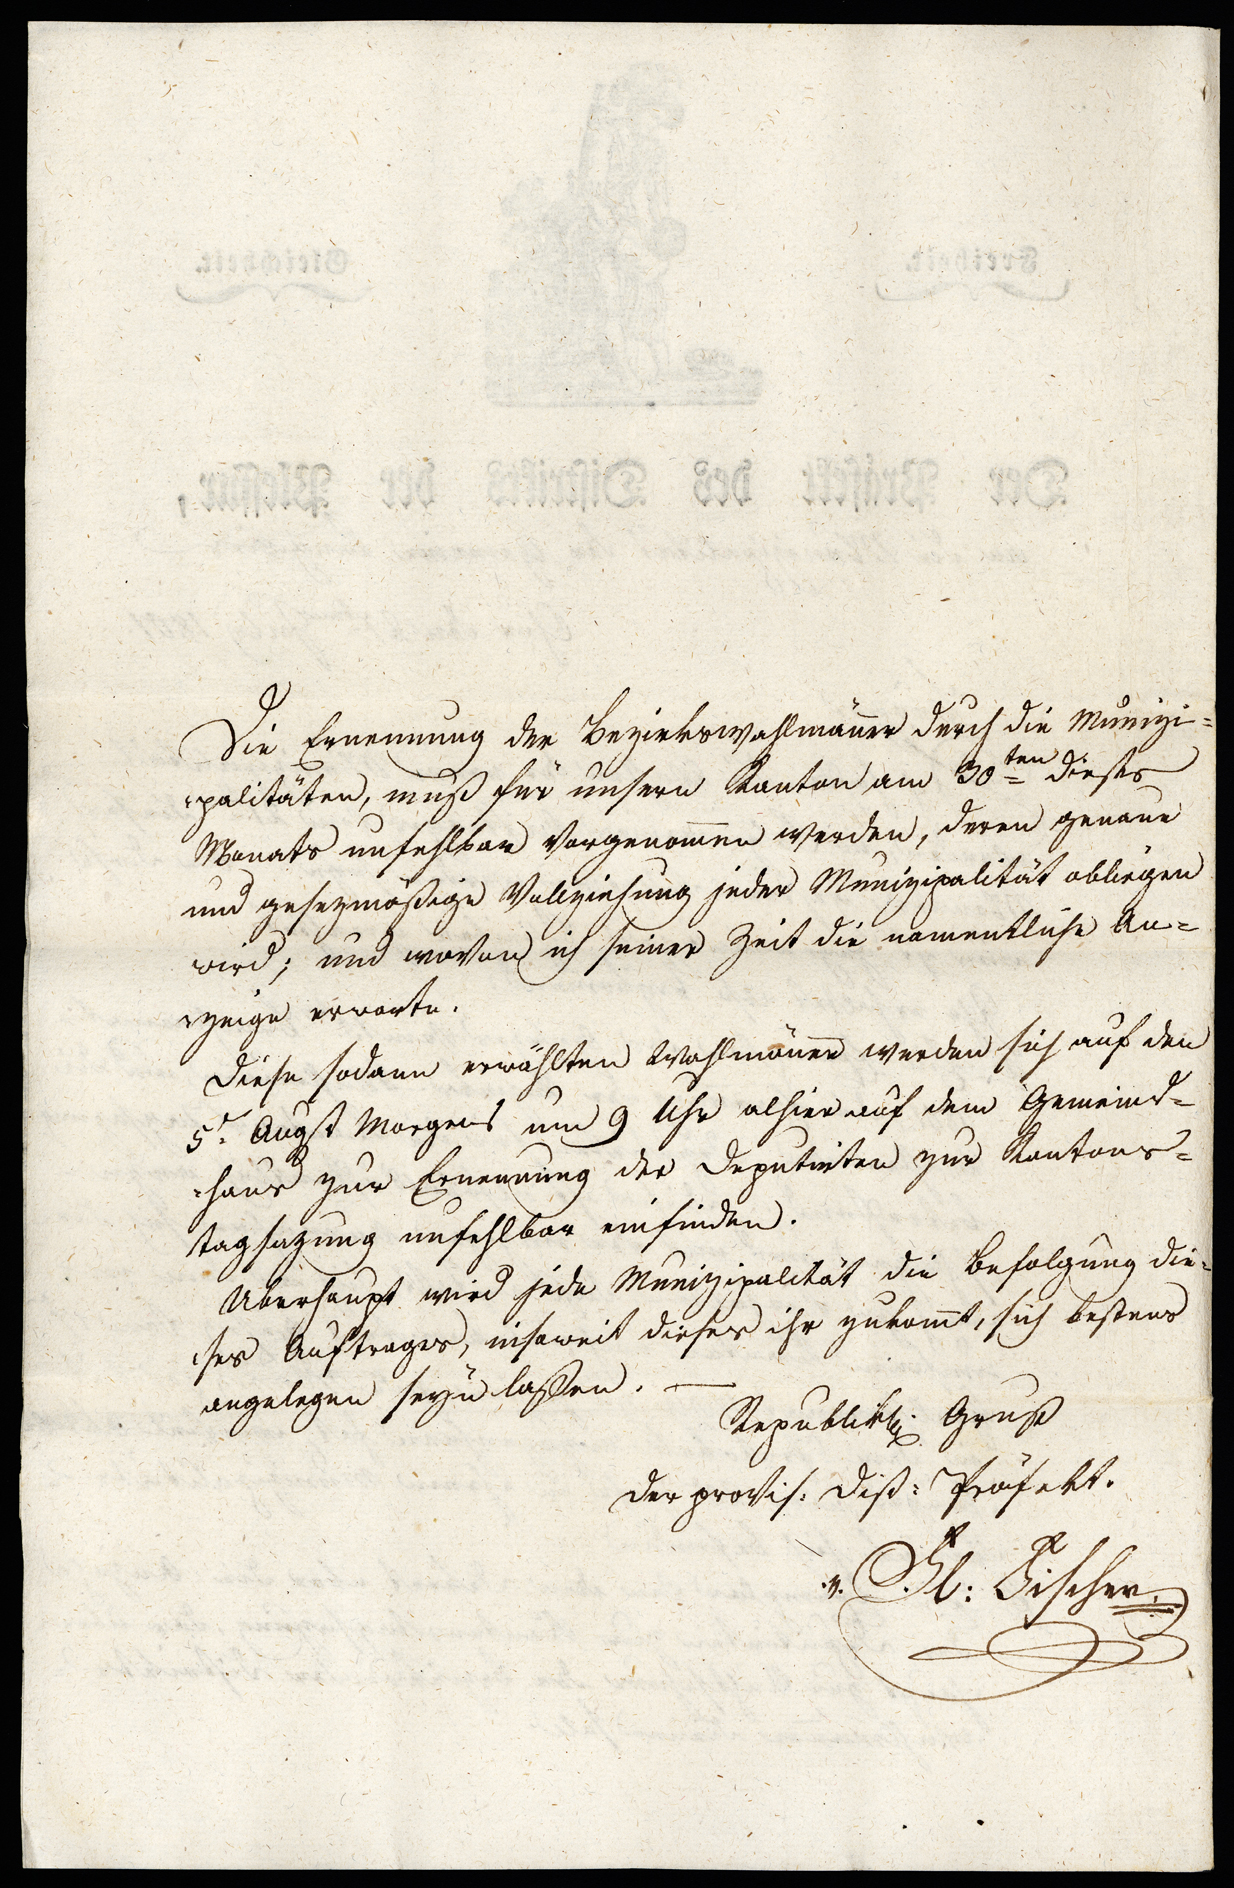 Die Ernennung der Bezirkswahlmäner durch die Munizi=
=palitäten, muß für unsern Kanton am 30ten dieses
Monats unfehlbar vorgenomen werden, deren genaue
und gesezmäßige Vollziehung jeder Munizipalität obliegen
wird; und wovon ich seiner Zeit die namentliche An=
=zeige erwarte.
Diese sodann erwählten Wahlmäner werden sich auf den
5t. Augst Morgens um 9 Uhr alhier auf dem Gemeind=
=haus zur Ernennung der Deputirten zur Kantons=
tagsazung unfehlbar einfinden.
Uberhaupt wird jede Munizipalität die Befolgung die=
=ses Auftrages, insoweit dieses ihr zukomt, sich bestens
angelegen seyn laßen. —
Republik. Gruß
der provis: Diß: Präfekt.
Fischer
Freiheit. Gleichheit.
Der Präfekt des Distrikts der Plessur,